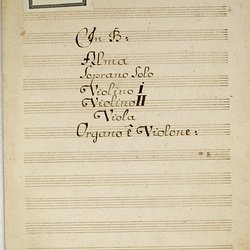 In B:
Alma
Soprano Solo
Violino I
Violino II
Viola
Organo è Violone: